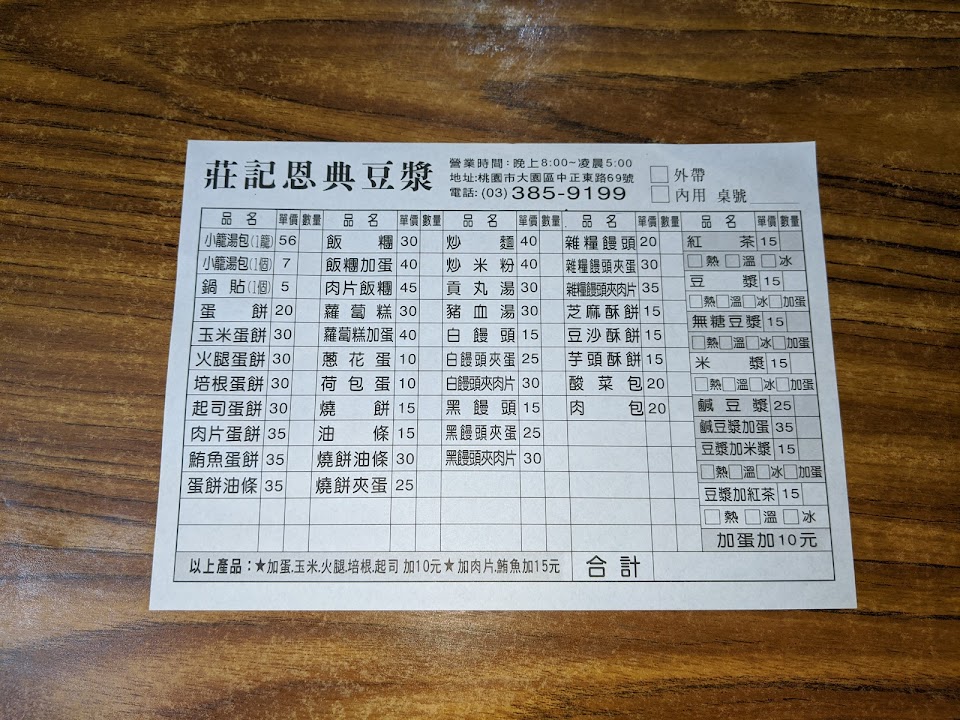 莊記恩典豆漿
營業時間:晚上8:00~凌晨5:00
地址:桃園市大園區中正東路69號
電話:(03)385-9199
外帶
內用 桌號
品名 單價 數量 品名 單價 數量 品名 單價 數量 品名 單價 數量 品名 單價 數量
小籠湯包(1籠) 56
小籠湯包(1個) 7
鍋貼(1個) 5
蛋餅 20
玉米蛋餅 30
火腿蛋餅 30
培根蛋餅 30
起司蛋餅 30
肉片蛋餅 35
鮪魚蛋餅 35
蛋餅油條 35
飯糰 30
飯糰加蛋 40
肉片飯糰 45
蘿蔔糕 30
蘿蔔糕加蛋 40
蔥花蛋 10
荷包蛋 10
燒餅 15
油條 15
燒餅油條 30
燒餅夾蛋 25
炒麵 40
炒米粉 40
貢丸湯 30
豬血湯 30
白饅頭 15
白饅頭夾蛋 25
白饅頭夾肉片 30
黑饅頭 15
黑饅頭夾蛋 25
黑饅頭夾肉片 30
雜糧饅頭 20
雜糧饅頭夾蛋 30
雜糧饅頭夾肉片 35
芝麻酥餅 15
豆沙酥餅 15
芋頭酥餅 15
酸菜包 20
肉包 20
紅茶 15
熱 溫 冰
豆漿 15
熱 溫 冰 加蛋
無糖豆漿 15
熱 溫 冰 加蛋
米漿 15
熱 溫 冰 加蛋
鹹豆漿 25
鹹豆漿加蛋 35
豆漿加米漿 15
熱 溫 冰 加蛋
豆漿加紅茶 15
熱 溫 冰
加蛋加10元
以上產品:★加蛋.玉米.火腿.培根.起司 加10元★加肉片.鮪魚加15元
合計